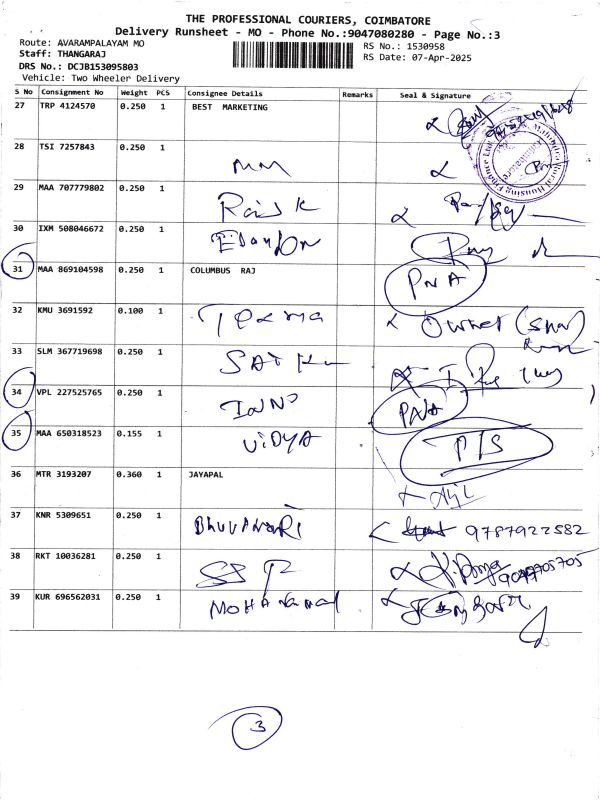 THE PROFESSIONAL COURIERS, COIMBATORE
Delivery Runsheet - MO - Phone No.:9047080280 - Page No.:3
Route: AVARAMPALAYAM MO
RS No.: 1530958
Staff: THANGARAJ
RS Date: 07-Apr-2025
DRS No.: DCJB153095803
Vehicle: Two Wheeler Delivery
S No Consignment No Weight PCS Consignee Details Remarks Seal & Signature
27 TRP 4124570 0.250 1 BEST MARKETING
28 TSI 7257843 0.250 1 MM
29 MAA 707779802 0.250 1
30 IXM 508046672 0.250 1
31 MAA 869104598 0.250 1 COLUMBUS RAJ PNA
32 KMU 3691592 0.100 1 Owner
33 SLM 367719698 0.250 1
34 VPL 227525765 0.250 1 PNA
35 MAA 650318523 0.155 1 ViDYA P/S
36 MTR 3193207 0.360 1 JAYAPAL
37 KNR 5309651 0.250 1 BhuvanaRi 9787922582
38 RKT 10036281 0.250 1
39 KUR 696562031 0.250 1
3